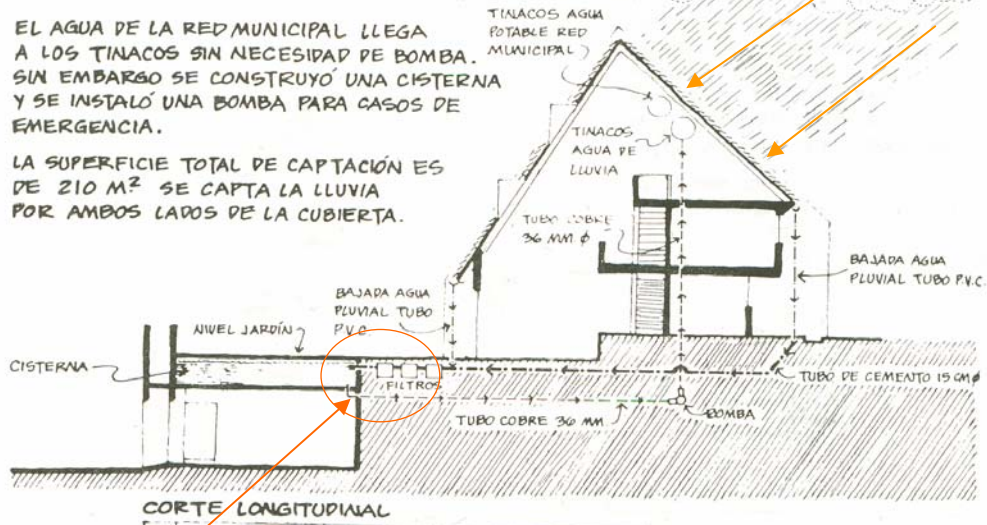 EL AGUA DE LA RED MUNICIPAL LLEGA
A LOS TINACOS SIN NECESIDAD DE BOMBA.
SIN EMBARGO SE CONSTRUYÓ UNA CISTERNA
Y SE INSTALÓ UNA BOMBA PARA CASOS DE
EMERGENCIA.
LA SUPERFICIE TOTAL DE CAPTACIÓN ES
DE 210 M² SE CAPTA LA LLUVIA
POR AMBOS LADOS DE LA CUBIERTA.
TINACOS AGUA
POTABLE RED
MUNICIPAL
TINACOS
AGUA DE
LLUVIA
TUBO COBRE
36 MM φ
BAJADA AGUA
PLUVIAL TUBO P.V.C.
BAJADA AGUA
PLUVIAL TUBO
P.V.C.
NIVEL JARDÍN
CISTERNA
FILTROS
TUBO DE CEMENTO 15 CM φ
TUBO COBRE 36 MM.
BOMBA
CORTE LONGITUDINAL